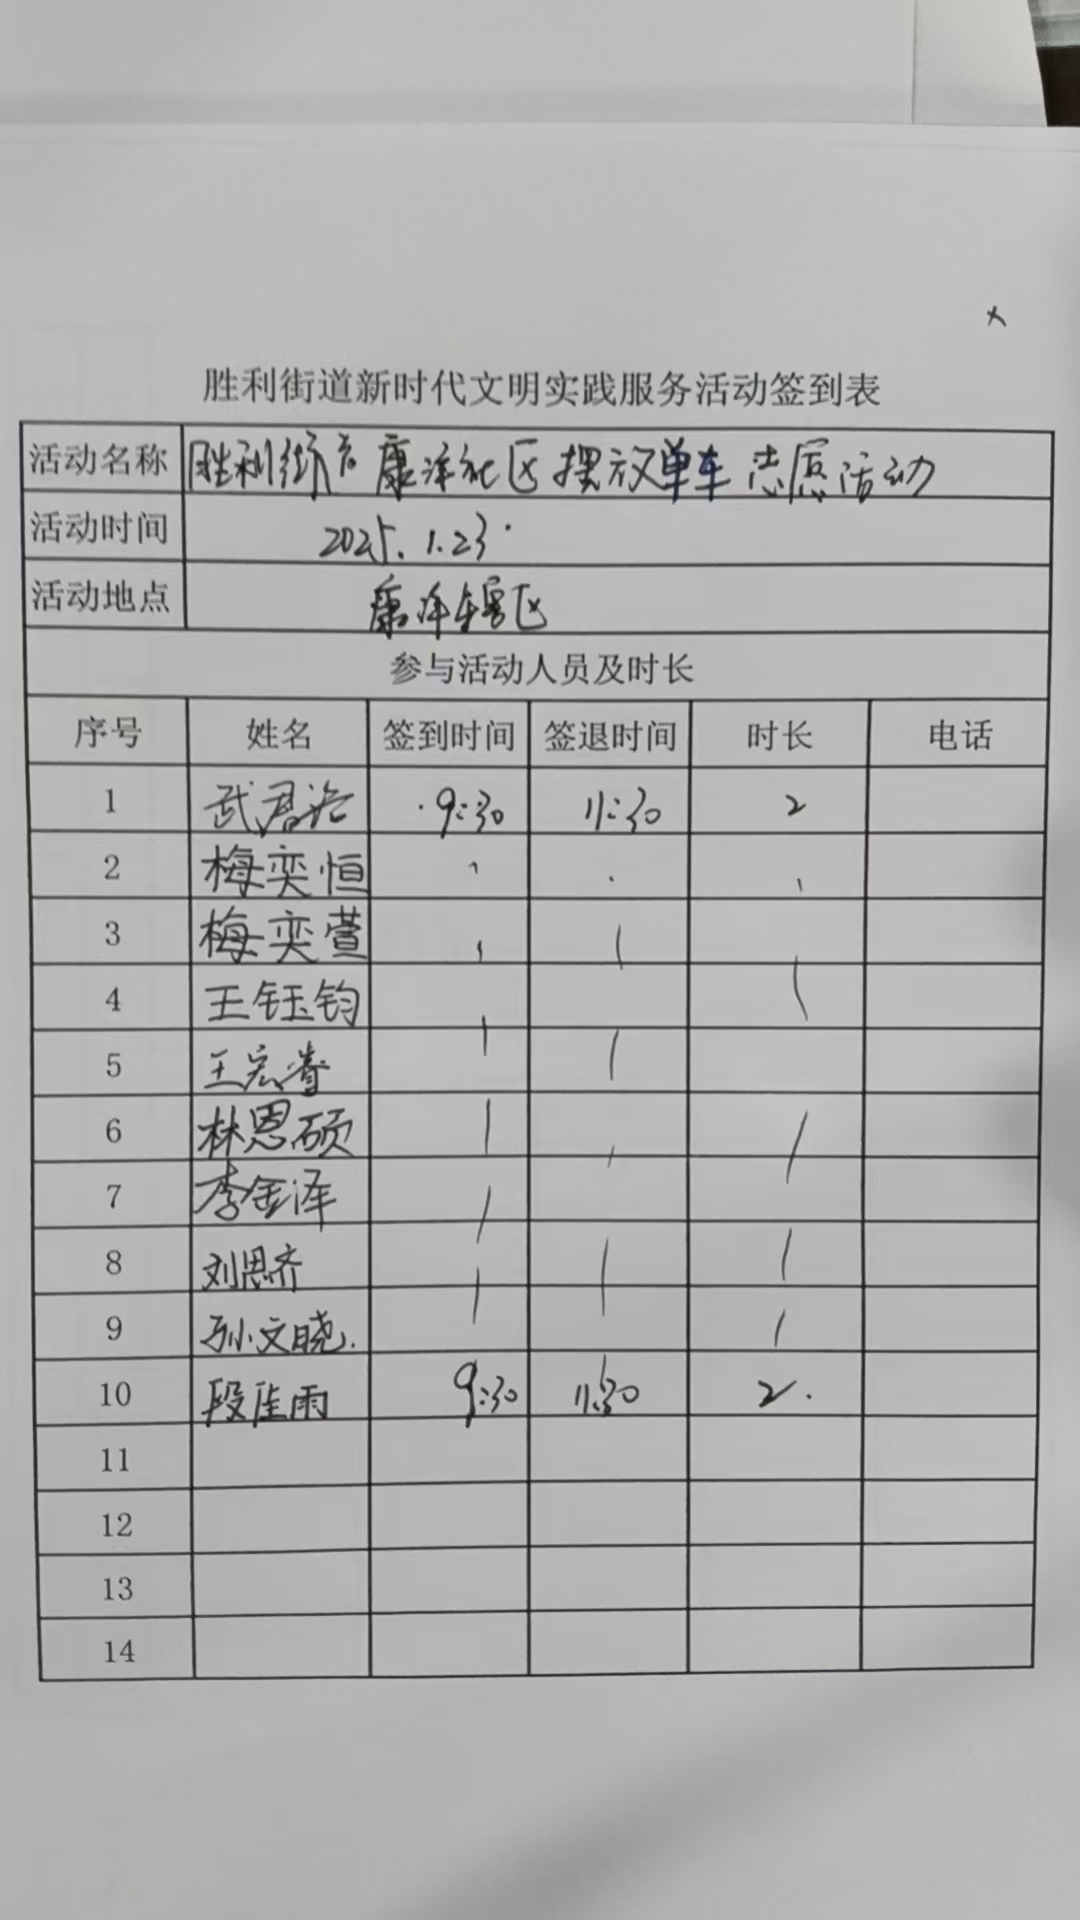 胜利街道新时代文明实践服务活动签到表
活动名称 胜利街道康洋社区摆放单车志愿活动
活动时间 2025.1.23.
活动地点 康洋辖区
参与活动人员及时长
序号 姓名 签到时间 签退时间 时长 电话
1 武君 9:30 11:30 2
2 梅奕恒
3 梅奕萱
4 王钰钧
5 王宏
6 林恩硕
7 李金泽
8 刘思齐
9 孙文晓.
10 段佳雨 9:30 11:30 2.
11
12
13
14